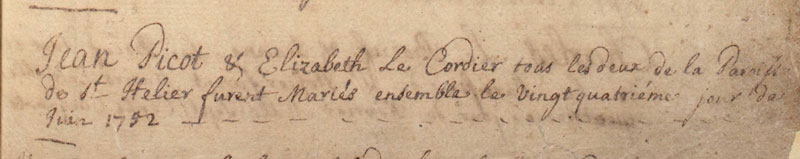 Jean Picot & Elizabeth Le Cordier tous les deux de la Paroiss
de St Helier furent Mariés ensemble le vingt quatriéme jour de
Juin 1752